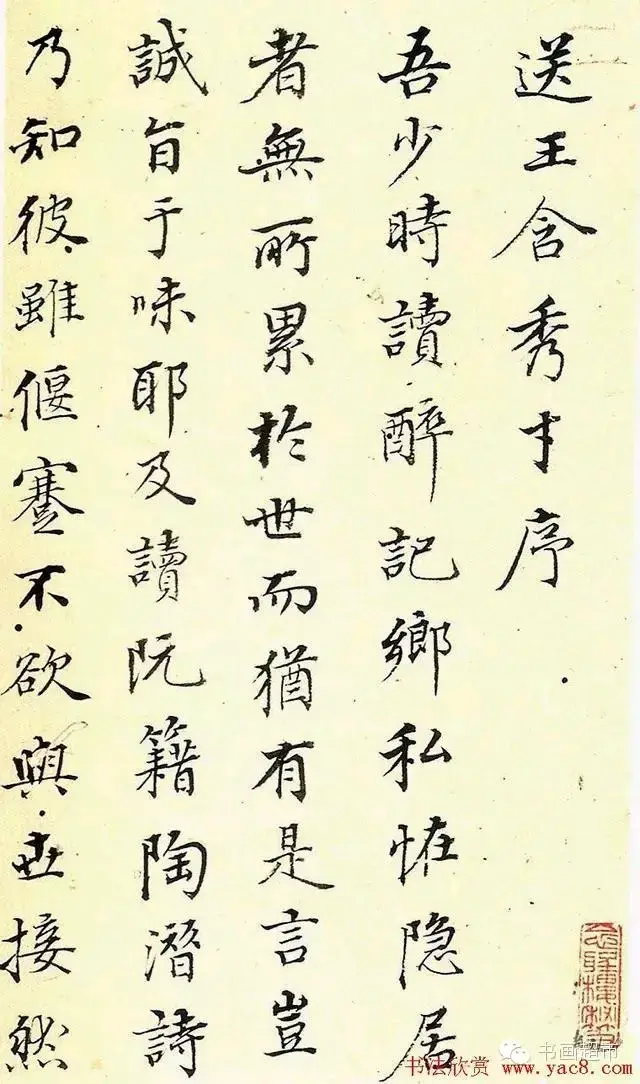 送王含秀才序
吾少時讀醉記鄉私怪隐居
者無所累於世而猶有是言豈
誠旨于味耶及讀阮籍陶潛詩
乃知彼雖偃蹇不欲與世接然
书法欣赏 www.yac8.com
书画超市